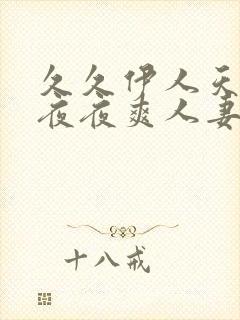 久久伊人天
夜夜爽人妻
十八戒